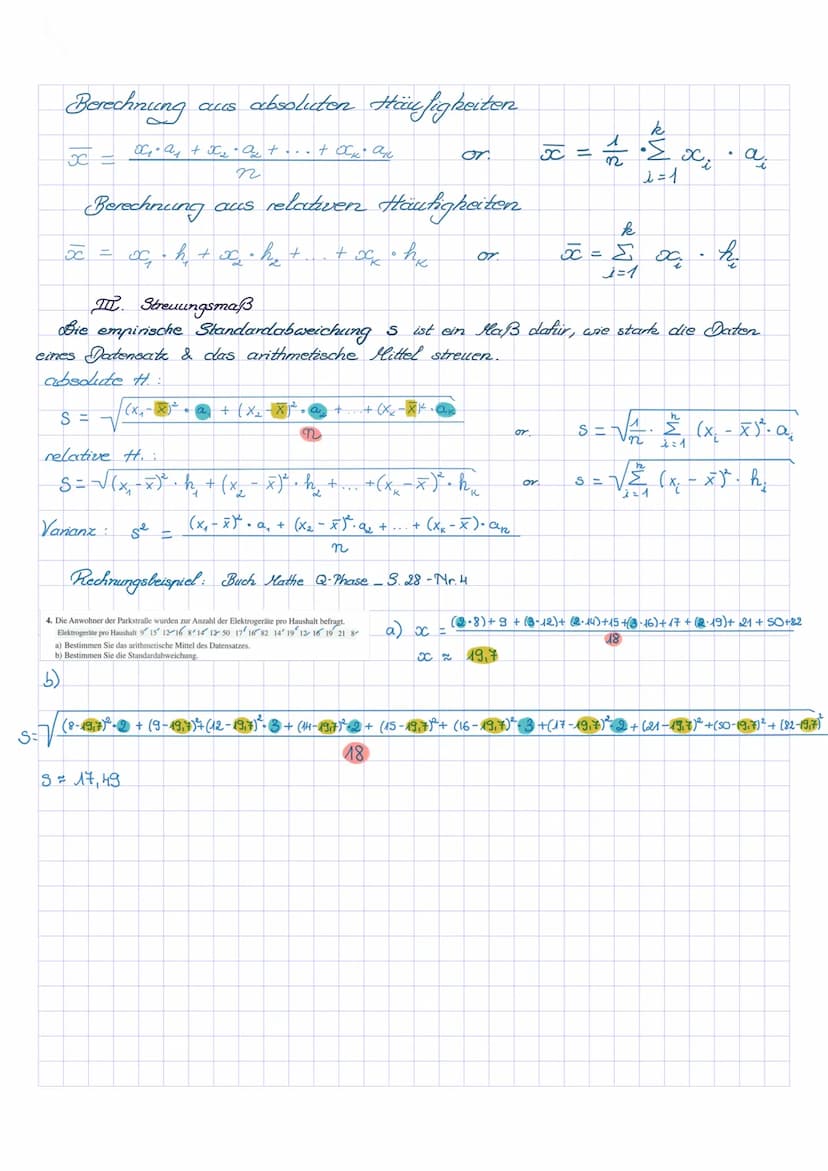 Berechnung aus absoluten Häufigkeiten
x̄ = (x₁·a₁ + x₂·a₂ + ... + xₖ·aₙ) / n or. x̄ = 1/n · Σ_{i=1}^{k} xᵢ · aᵢ
Berechnung aus relativen Häufigkeiten
x̄ = x₁·h₁ + x₂·h₂ + ... + xₖ·hₖ or. x̄ = Σ_{i=1}^{k} xᵢ · hᵢ
III. Streuungsmaß
Die empirische Standardabweichung s ist ein Maß dafür, wie stark die Daten
eines Datensatz & das arithmetische Mittel streuen.
absolute H.:
s = √((x₁-x̄)²·a₁ + (x₂-x̄)²·a₂ + ... + (xₖ-x̄)²·aₖ / n) or. s = √(1/n · Σ_{i=1}^{n} (xᵢ - x̄)²·aᵢ)
relative H.:
s = √((x₁-x̄)²·h₁ + (x₂-x̄)²·h₂ + ... + (xₖ-x̄)²·hₖ) or s = √(Σ_{i=1}^{n} (xᵢ - x̄)²·hᵢ)
Varianz: s² = ((x₁-x̄)²·a₁ + (x₂-x̄)²·a₂ + ... + (xₖ-x̄)·aₙ) / n
Rechnungsbeispiel: Buch Mathe Q-Phase _ S. 28 - Nr. 4
4. Die Anwohner der Parkstraße wurden zur Anzahl der Elektrogeräte pro Haushalt befragt.
Elektrogeräte pro Haushalt 9 15 12 16 8 14 12 50 17 16 82 14 19 12 16 19 21 8
a) Bestimmen Sie das arithmetische Mittel des Datensatzes.
b) Bestimmen Sie die Standardabweichung.
a) x = ((2·8) + 9 + (3·12) + (2·14) + 15 + (3·16) + 17 + (2·19) + 21 + 50 + 82) / 18
x ≈ 19,7
b)
s = √((8-19,7)²·2 + (9-19,7)² + (12-19,7)²·3 + (14-19,7)²·2 + (15-19,7)² + (16-19,7)²·3 + (17-19,7)²·2 + (21-19,7)² + (50-19,7)² + (82-19,7)² / 18)
s ≈ 17,49